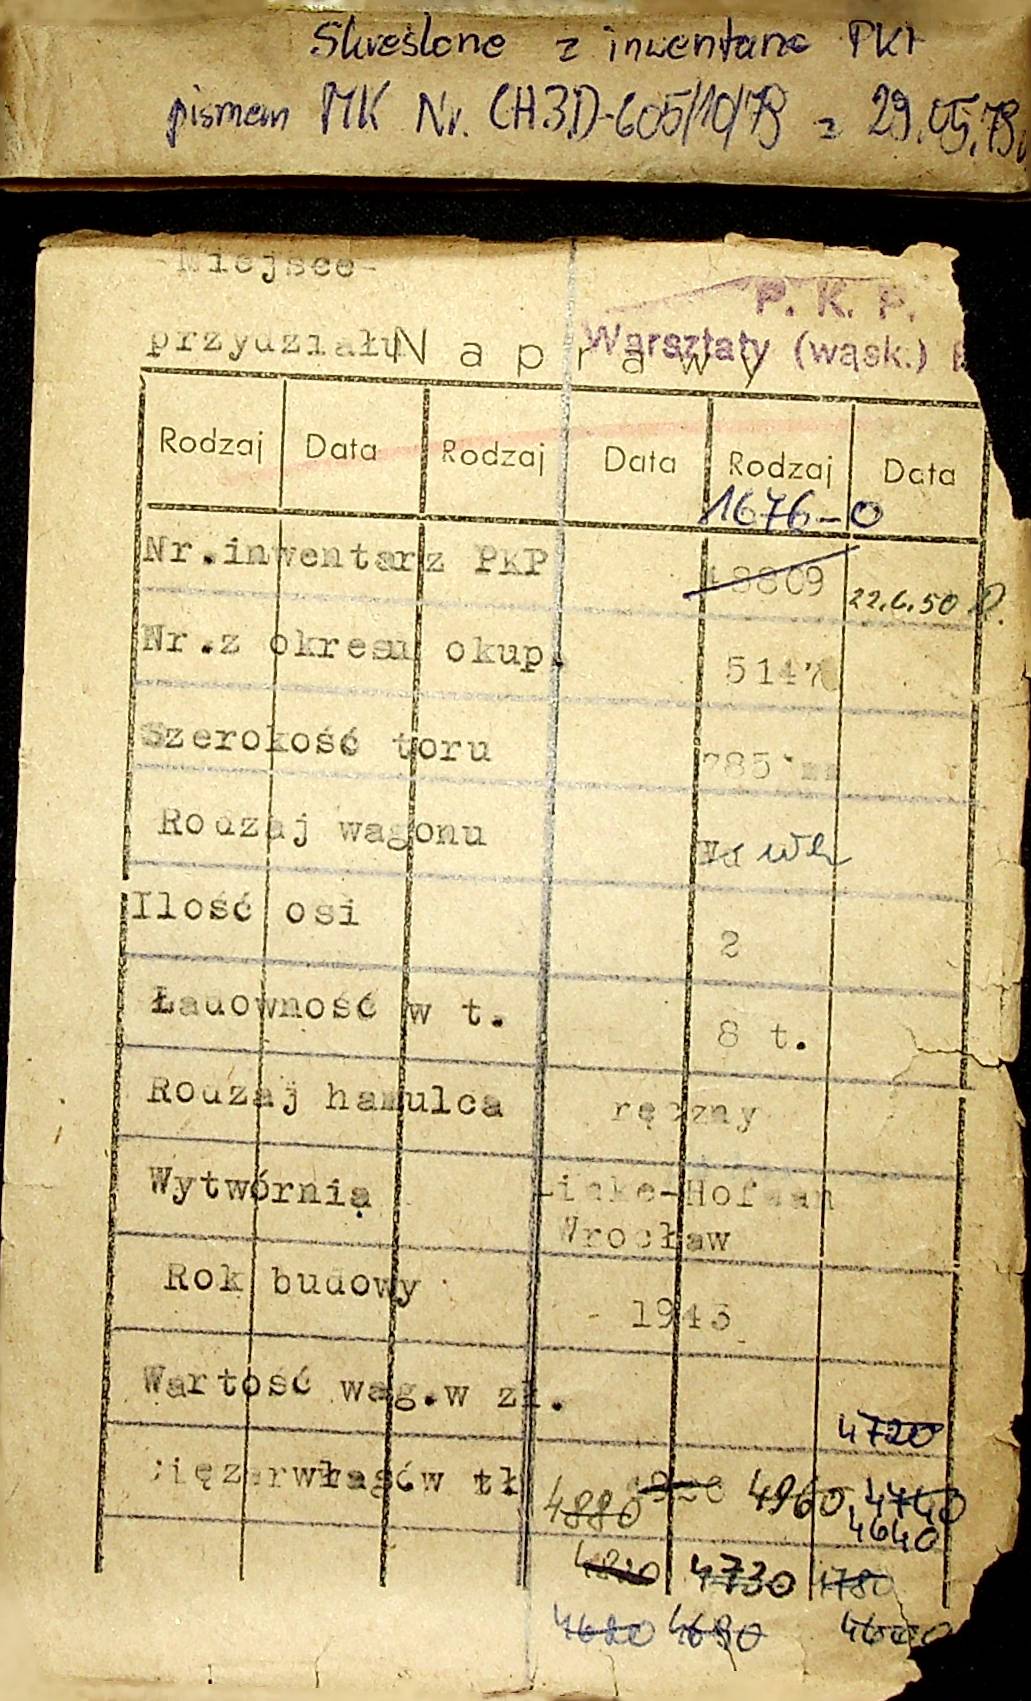 Skreślone z inwentarza PKP
pismem MK Nr. CH3D-605/10/79 z 29.05.79.
-Miejsce-
P. K. P.
przydziału
Naprawy
Warsztaty (wąsk.)
Rodzaj Data Rodzaj Data Rodzaj Data
1676-0
Nr.inwentarz PKP 18809 22.6.50
Nr.z okresu okup. 5147
Szerokość toru 785 mm
Rodzaj wagonu
Ilość osi 2
Ładowność w t. 8 t.
Rodzaj hamulca ręczny
Wytwórnia Linke-Hofman
Wrocław
Rok budowy - 1943
Wartość wag.w zł.
4720
4880 4960 4740
4640
4730 4780
4680 4690